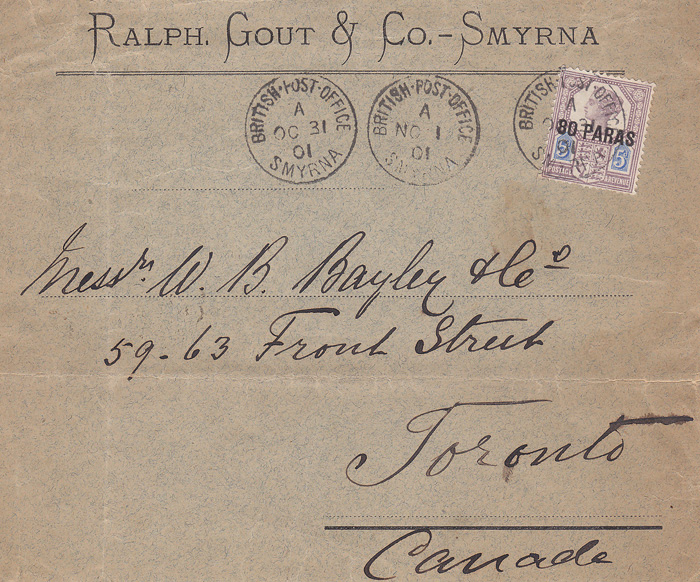 RALPH. GOUT & CO. – SMYRNA
BRITISH·POST·OFFICE
A
OC 31
01
SMYRNA
BRITISH·POST·OFFICE
A
NO 1
01
SMYRNA
BRITISH
A
80 PARAS
5 5
POSTAGE REVENUE
Messrs. W. B. Bayley & Co
59-63 Front Street
Toronto
Canada